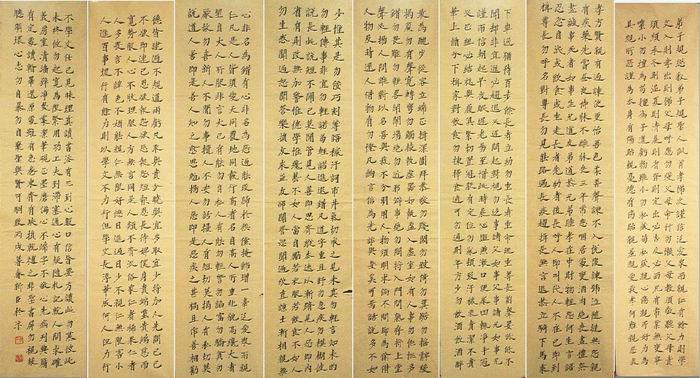 弟子規總敘弟子規聖人訓首孝弟次謹信汎愛眾而親仁有餘力則學
文入則孝出則弟父母呼應勿緩父母命行勿懶父母教須敬聽父母責
須順承冬則溫夏則凊晨則省昏則定出必告反必面居有常業無變事
雖小勿擅為苟擅為子道虧物雖小勿私藏苟私藏親心傷親所好力為
具親所惡謹為去身有傷貽親憂德有傷貽親羞親愛我孝何難親惡我
孝方賢親有過諫使更怡吾色柔吾聲諫不入悅復諫號泣隨撻無怨親
有疾藥先嘗晝夜侍不離床喪三年常悲咽居處變酒肉絕喪盡禮祭
盡誠事死者如事生兄道友弟道恭兄弟睦孝在中財物輕怨何生言語
忍忿自泯或飲食或坐走長者先幼者後長呼人即代叫人不在己即到
稱尊長勿呼名對尊長勿見能路遇長疾趨揖長無言退恭立騎下馬乘
下車過猶待百步餘長者立幼勿坐長者坐命乃坐尊長前聲要低低不
聞卻非宜進必趨退必遲問起對視勿移事諸父如事父事諸兄如事兄
謹而信朝起早夜眠遲老易至惜此時晨必盥兼漱口便溺回輒淨手冠
必正紐必結襪與履俱緊切置冠服有定位勿亂頓致污穢衣貴潔不貴
華上循分下稱家對飲食勿揀擇食適可勿過則年方少勿飲酒飲酒醉
最為醜步從容立端正揖深圓拜恭敬勿踐閾勿跛倚勿箕踞勿搖髀緩
揭簾勿有聲寬轉彎勿觸棱執虛器如執盈入虛室如有人事勿忙忙多
錯勿畏難勿輕略鬥鬧場絕勿近邪僻事絕勿問將入門問孰存將上堂
聲必揚人問誰對以名吾與我不分明用人物須明求倘不問即為偷借
人物及時還人借物有勿慳凡出言信為先詐與妄奚可焉話說多不如
少惟其是勿佞巧刻薄語穢污詞市井氣切戒之見未真勿輕言知未的
勿輕傳事非宜勿輕諾苟輕諾進退錯凡道字重且舒勿急疾勿模糊彼
說長此說短不關己莫閒管見人善即思齊縱去遠以漸躋見人惡即內
省有則改無加警惟德學惟才藝不如人當自礪若衣服若飲食不如人
勿生慼聞過怒聞譽樂損友來益友卻聞譽恐聞過欣直諒士漸相親無
心非名為錯有心非名為惡過能改歸於無倘掩飾增一辜汎愛眾而親
仁凡是人皆須愛天同覆地同載行高者名自高人所重非貌高才大者
望自大人所服非言大己有能勿自私人有能勿輕訾勿諂富勿驕貧勿
厭故勿喜新人不閒勿事攪人不安勿話擾人有短切莫揭人有私切莫
說道人善即是善人知之愈思勉揚人惡即是惡疾之甚禍且作善相勸
德皆建過不規道兩虧凡取與貴分曉與宜多取宜少將加人先問己己
不欲即速已恩欲報怨欲忘報怨短報恩長待婢僕身貴端雖貴端慈而
寬勢服人心不然理服人方無言同是人類不齊流俗眾仁者稀果仁者
人多畏言不諱色不媚能親仁無限好德日進過日少不親仁無限害小
人進百事壞行有餘力則以學文不力行但學文長浮華成何人但力行
不學文任己見昧理真讀書法有三到心眼口信皆要方讀此勿慕彼此
未終彼勿起寬為限緊用功工夫到滯塞通心有疑隨札記就人問求確
義房室清牆壁淨几案潔筆硯正墨磨偏心不端字不敬心先病列典籍
有定處讀看畢還原處雖有急卷束齊有缺壞就補之非聖書屏勿視蔽
聰明壞心志勿自暴勿自棄聖與賢可馴致丙戌春